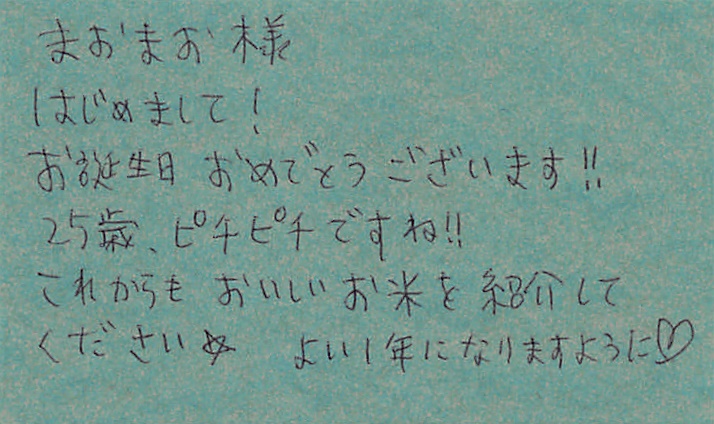 まおまお様
はじめまして!
お誕生日 おめでとうございます!!
25歳、ピチピチですね!!
これからも おいしいお米を紹介して
ください☆ よい1年になりますように♡